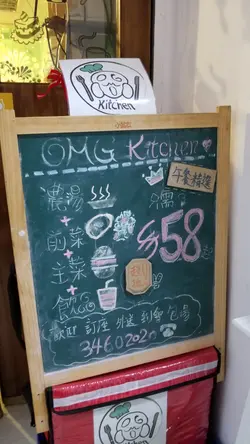 Kitchen
OMG Kitchen
午餐精選
濃湯
+
前菜
+
主菜
+
飲品
只需
$58
歡迎 訂座 外送 到會 包場
34602020
Kitchen